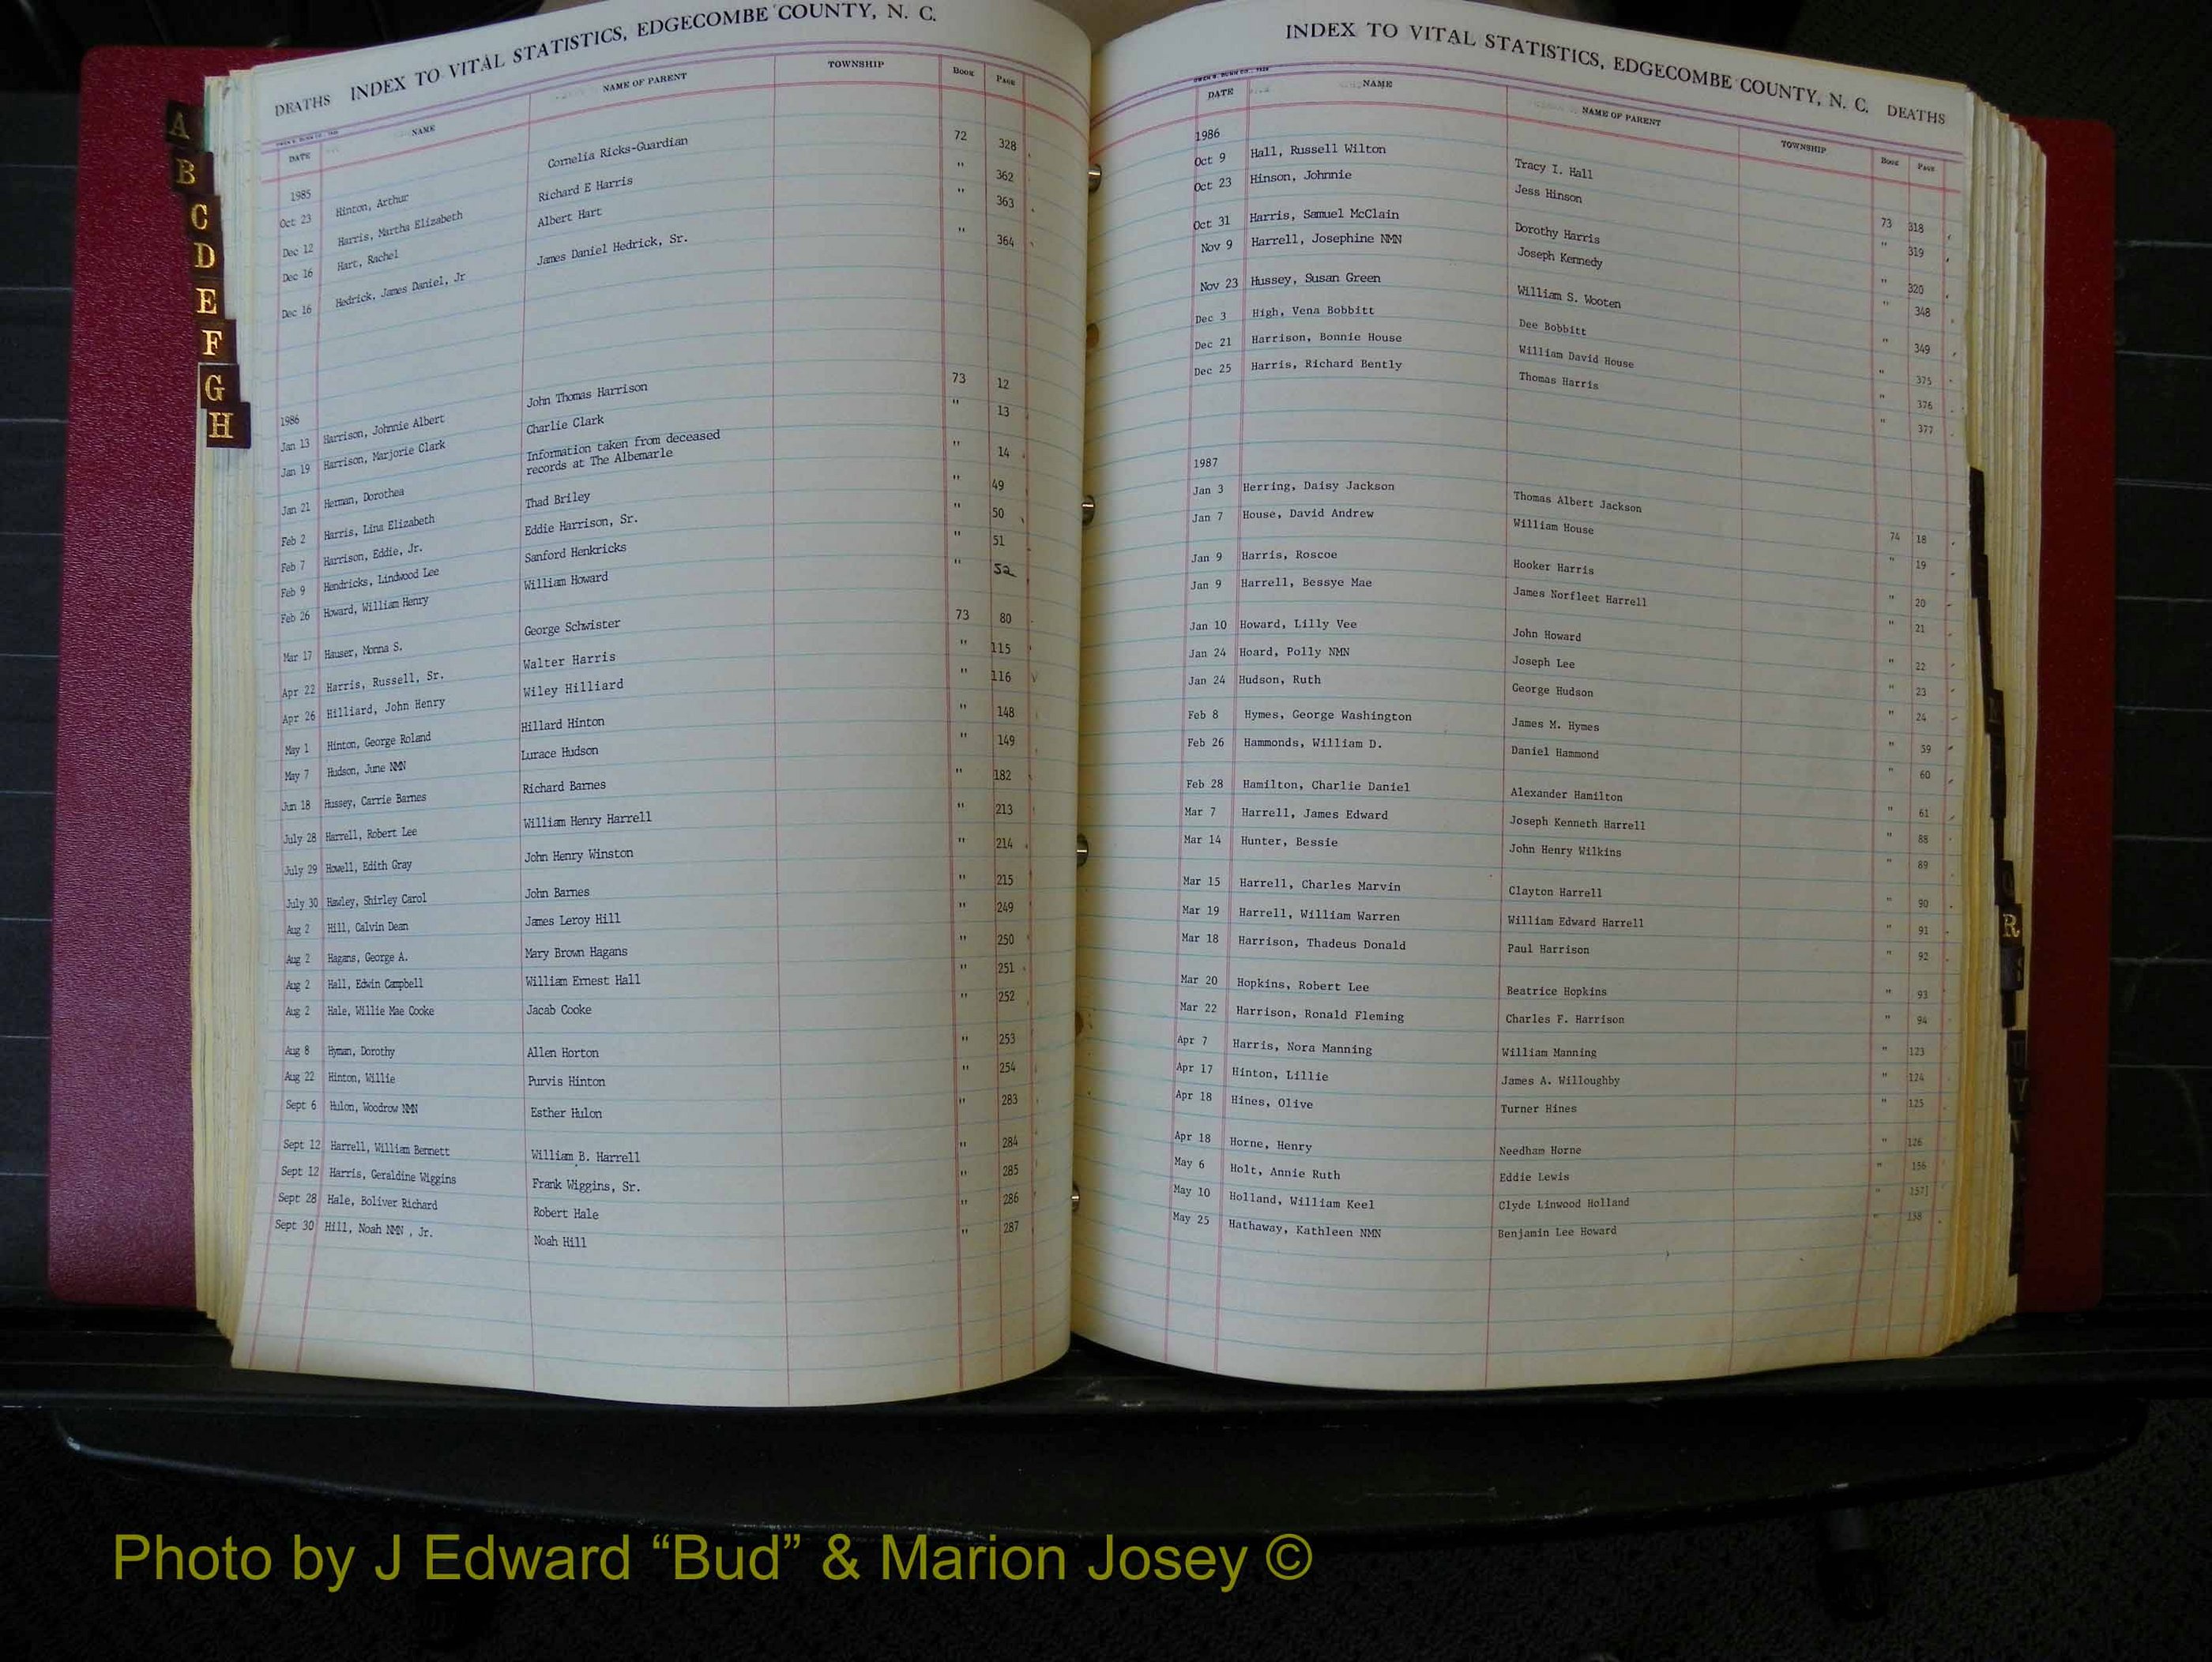 A
B
C
D
E
F
G
H
DEATHS INDEX TO VITAL STATISTICS, EDGECOMBE COUNTY, N. C.
DATE NAME NAME OF PARENT TOWNSHIP BOOK PAGE
1985
Oct 23 Hinton, Arthur Cornelia Ricks-Guardian 72 328
Dec 12 Harris, Martha Elizabeth Richard E Harris " 362
Dec 16 Hart, Rachel Albert Hart " 363
Dec 16 Hedrick, James Daniel, Jr James Daniel Hedrick, Sr. " 364
1986
Jan 13 Harrison, Johnnie Albert John Thomas Harrison 73 12
Jan 19 Harrison, Marjorie Clark Charlie Clark " 13
Jan 21 Herman, Dorothea Information taken from deceased records at The Albemarle " 14
Feb 2 Harris, Lina Elizabeth Thad Briley " 49
Feb 7 Harrison, Eddie, Jr. Eddie Harrison, Sr. " 50
Feb 9 Hendricks, Lindwood Lee Sanford Henkricks " 51
Feb 26 Howard, William Henry William Howard " 52
Mar 17 Hauser, Monna S. George Schwister 73 80
Apr 22 Harris, Russell, Sr. Walter Harris " 115
Apr 26 Hilliard, John Henry Wiley Hilliard " 116
May 1 Hinton, George Roland Hillard Hinton " 148
May 7 Hudson, June NMN Lurace Hudson " 149
Jun 18 Hussey, Carrie Barnes Richard Barnes " 182
July 28 Harrell, Robert Lee William Henry Harrell " 213
July 29 Howell, Edith Gray John Henry Winston " 214
July 30 Hawley, Shirley Carol John Barnes " 215
Aug 2 Hill, Calvin Dean James Leroy Hill " 249
Aug 2 Hagans, George A. Mary Brown Hagans " 250
Aug 2 Hall, Edwin Campbell William Ernest Hall " 251
Aug 2 Hale, Willie Mae Cooke Jacab Cooke " 252
Aug 8 Hyman, Dorothy Allen Horton " 253
Aug 22 Hinton, Willie Purvis Hinton " 254
Sept 6 Hulon, Woodrow NMN Esther Hulon " 283
Sept 12 Harrell, William Bennett William B. Harrell " 284
Sept 12 Harris, Geraldine Wiggins Frank Wiggins, Sr. " 285
Sept 28 Hale, Boliver Richard Robert Hale " 286
Sept 30 Hill, Noah NMN , Jr. Noah Hill " 287
INDEX TO VITAL STATISTICS, EDGECOMBE COUNTY, N. C. DEATHS
DATE NAME NAME OF PARENT TOWNSHIP BOOK PAGE
1986
Oct 9 Hall, Russell Wilton Tracy I. Hall 73 318
Oct 23 Hinson, Johnnie Jess Hinson " 319
Oct 31 Harris, Samuel McClain Dorothy Harris " 320
Nov 9 Harrell, Josephine NMN Joseph Kennedy " 348
Nov 23 Hussey, Susan Green William S. Wooten " 349
Dec 3 High, Vena Bobbitt Dee Bobbitt " 375
Dec 21 Harrison, Bonnie House William David House " 376
Dec 25 Harris, Richard Bently Thomas Harris " 377
1987
Jan 3 Herring, Daisy Jackson Thomas Albert Jackson 74 18
Jan 7 House, David Andrew William House " 19
Jan 9 Harris, Roscoe Hooker Harris " 20
Jan 9 Harrell, Bessye Mae James Norfleet Harrell " 21
Jan 10 Howard, Lilly Vee John Howard " 22
Jan 24 Hoard, Polly NMN Joseph Lee " 23
Jan 24 Hudson, Ruth George Hudson " 24
Feb 8 Hymes, George Washington James M. Hymes " 59
Feb 26 Hammonds, William D. Daniel Hammond " 60
Feb 28 Hamilton, Charlie Daniel Alexander Hamilton " 61
Mar 7 Harrell, James Edward Joseph Kenneth Harrell " 88
Mar 14 Hunter, Bessie John Henry Wilkins " 89
Mar 15 Harrell, Charles Marvin Clayton Harrell " 90
Mar 19 Harrell, William Warren William Edward Harrell " 91
Mar 18 Harrison, Thadeus Donald Paul Harrison " 92
Mar 20 Hopkins, Robert Lee Beatrice Hopkins " 93
Mar 22 Harrison, Ronald Fleming Charles F. Harrison " 94
Apr 7 Harris, Nora Manning William Manning " 123
Apr 17 Hinton, Lillie James A. Willoughby " 124
Apr 18 Hines, Olive Turner Hines " 125
Apr 18 Horne, Henry Needham Horne " 126
May 6 Holt, Annie Ruth Eddie Lewis " 156
May 10 Holland, William Keel Clyde Linwood Holland " 157
May 25 Hathaway, Kathleen NMN Benjamin Lee Howard " 158
R
Photo by J Edward “Bud” & Marion Josey ©